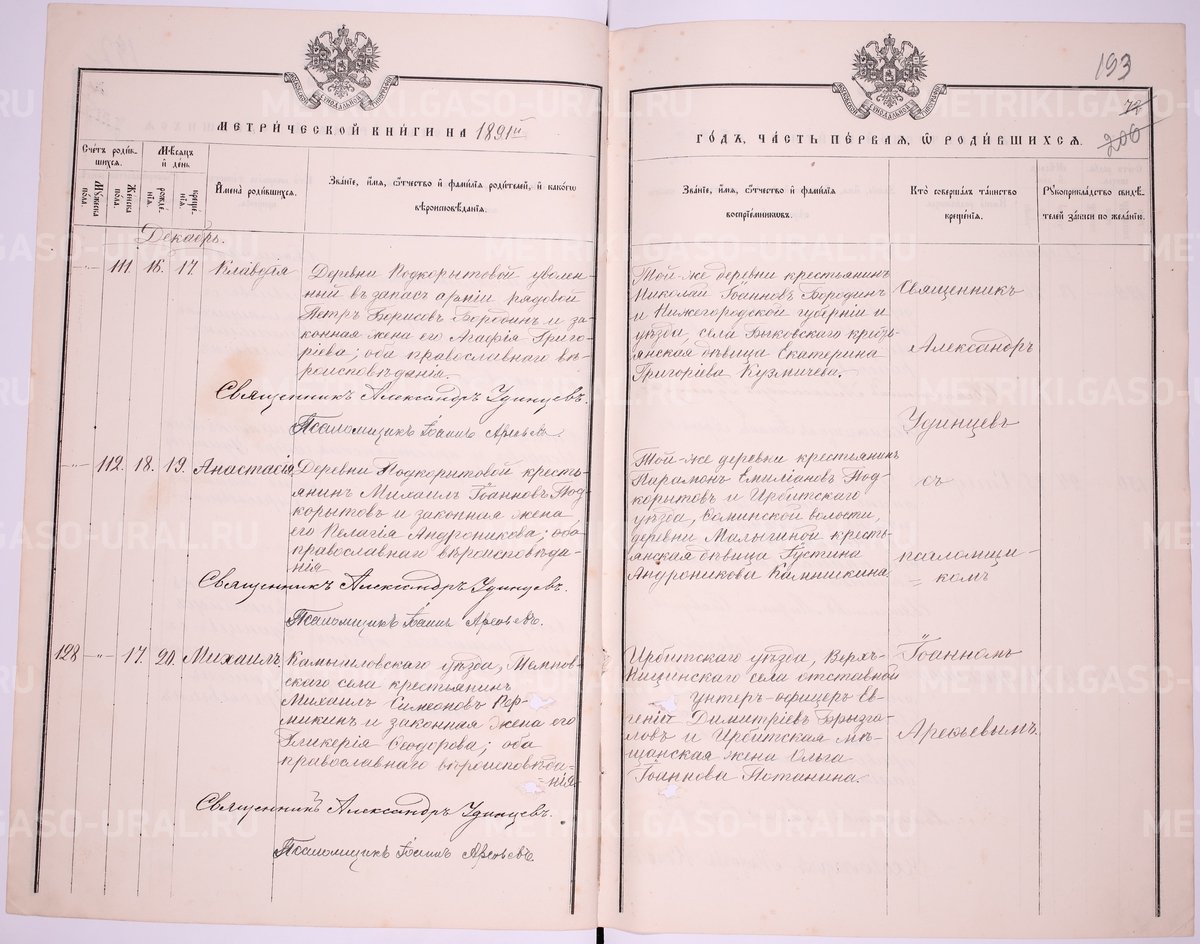 193
72
206
МЕТРИЧЕСКОЙ КНИГИ НА 1891й
ГОДЪ, ЧАСТЬ ПЕРВАЯ, Ѡ РОДИВШИХСЯ.
Счетъ родившихся.
Мужеска пола.
Женска пола.
Мѣсяцъ и день.
рожденія.
крещенія.
Имена родившихся.
Званіе, имя, ѿчество и фамилія родителей, и какого
вѣроисповѣданія.
Званіе, имя, ѿчество и фамилія
воспріемниковъ.
Кто совершалъ таинство
крещенія.
Рукоприкладство свидѣ-
телей записи по желанію.
Декабрь.
111. 16. 17 Клавдія
Деревни Подкорытовой уволен-
ный въ запасъ арміи рядовой
Петръ Борисовъ Бородинъ и за-
конная жена его Агафія Григо-
ріева; оба православнаго вѣ-
роисповѣданія.
Священникъ Александръ Удинцевъ.
Псаломщикъ Іоаннъ Арефьевъ.
Той-же деревни крестьянинъ
Николай Іоанновъ Бородинъ
и Нижегородской губерніи и
уѣзда, села Быковскаго кресть-
янская дѣвица Екатерина
Григоріева Кузмичева.
112. 18. 19. Анастасія
Деревни Подкорытовой кресть-
янинъ Михаилъ Іоанновъ Под-
корытовъ и законная жена
его Пелагія Андроникова; оба
православнаго вѣроисповѣда-
нія
Священникъ Александръ Удинцевъ.
Псаломщикъ Іоаннъ Арефьевъ.
Той-же деревни крестьянинъ
Парамонъ Емиліановъ Под-
корытовъ и Ирбитскаго
уѣзда, волости,
деревни Малыгиной кресть-
янская дѣвица Іустина
Андроникова
128 -„- 17. 20. Михаилъ
Камышловскаго уѣзда,
скаго села крестьянинъ
Михаилъ Симеоновъ Пер-
микинъ и законная жена его
Гликерія Ѳеодорова; оба
православнаго вѣроисповѣда-
=нія.
Священникъ Александръ Удинцевъ.
Псаломщикъ Іоаннъ Арефьевъ.
Ирбитскаго уѣзда, Верх-
села отставной
унтеръ-офицеръ Ев-
геній Димитріевъ Брызга-
ловъ и Ирбитская мѣ-
щанская жена Ольга
Іоаннова
Священникъ
Александръ
Удинцевъ
съ
псаломщи-
= комъ
Іоанномъ
Арефьевымъ.
METRIKI.GASO-URAL.RU